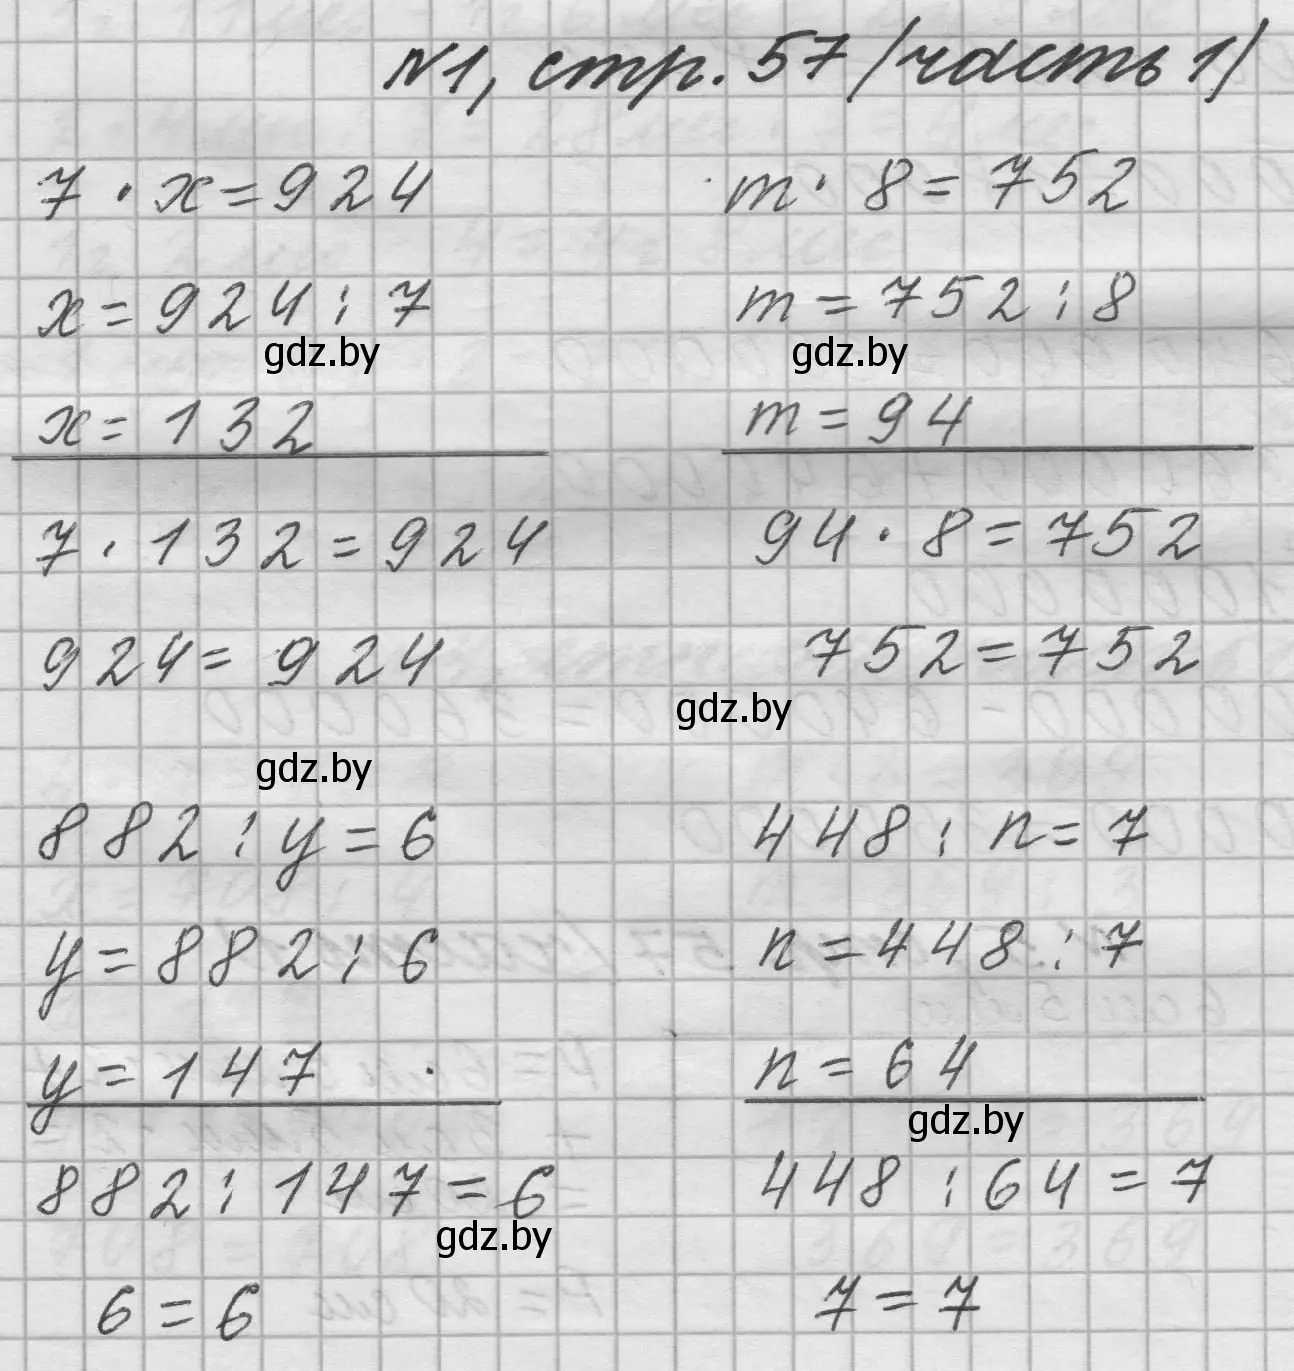 №1, стр. 57 /часть 1/
7 · x = 924
x = 924 : 7
gdz.by
x = 132
7 · 132 = 924
924 = 924
m · 8 = 752
m = 752 : 8
gdz.by
m = 94
94 · 8 = 752
752 = 752
gdz.by
gdz.by
882 : y = 6
y = 882 : 6
y = 147
882 : 147 = 6
gdz.by
6 = 6
448 : n = 7
n = 448 : 7
n = 64
gdz.by
448 : 64 = 7
7 = 7